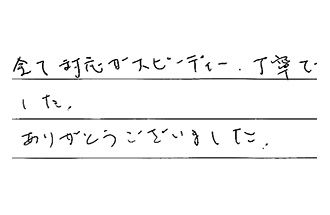 全て対応がスピーディー、丁寧で
した。
ありがとうございました。